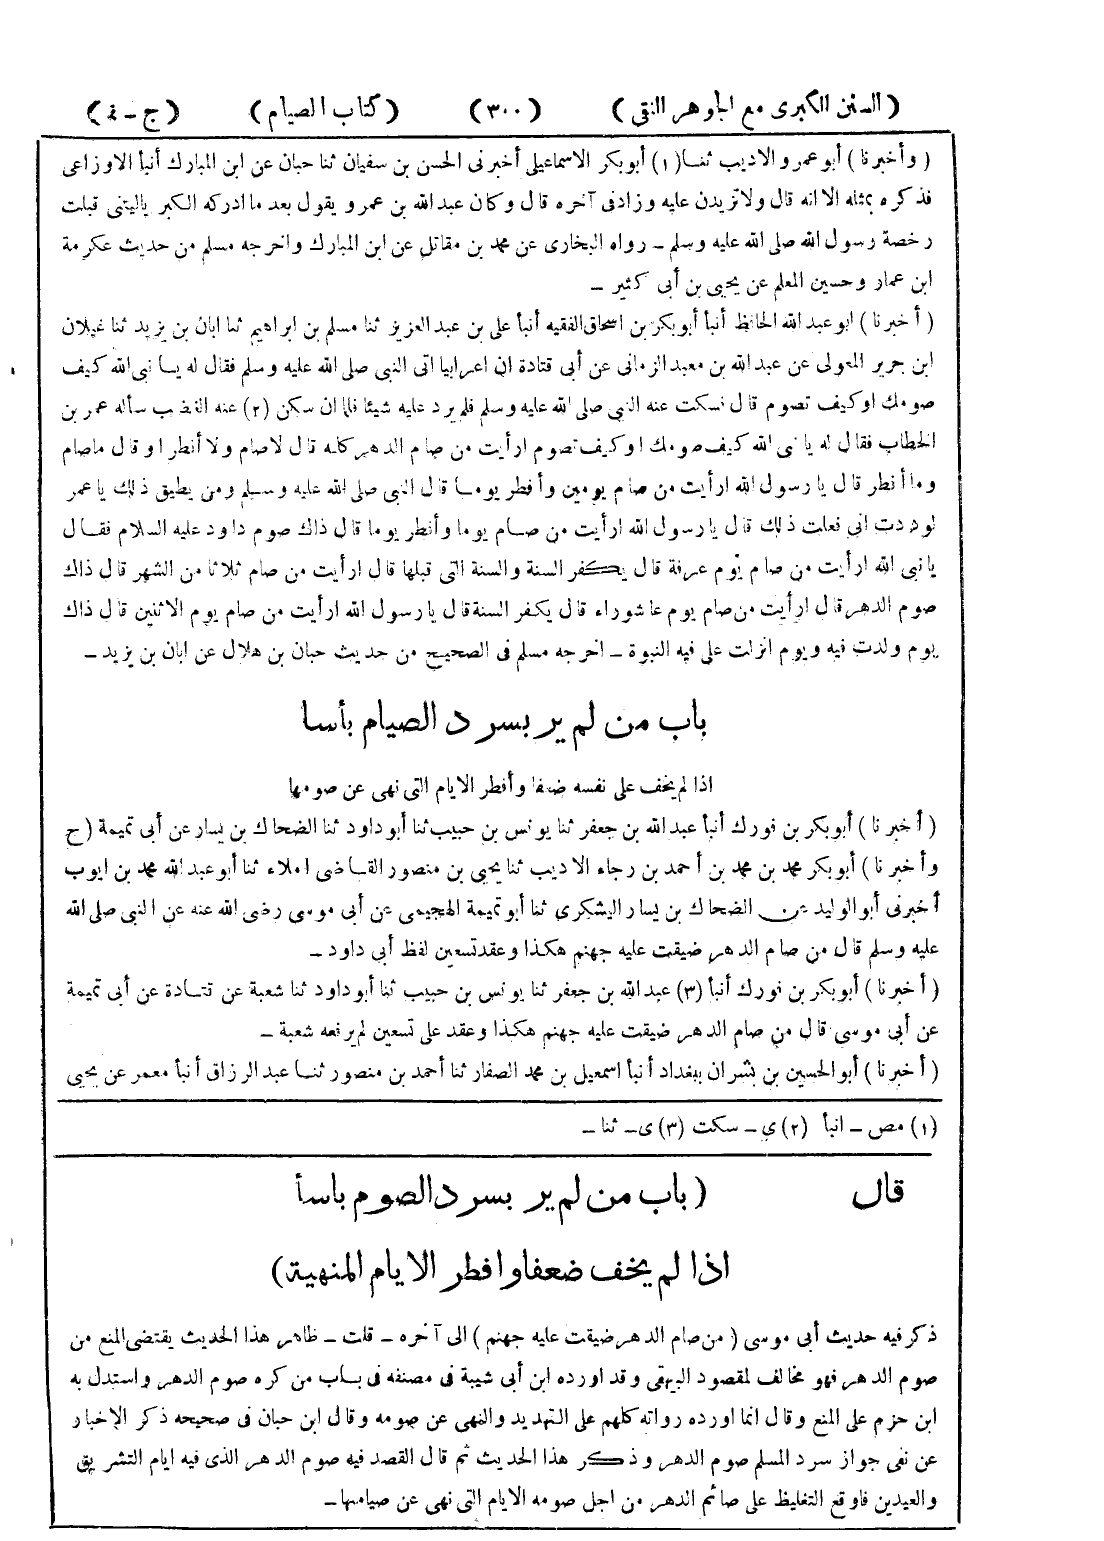 ( السنن الكبرى مع الجوهر النقى ) ( ٣٠٠ ) ( كتاب الصيام ) ( ج – ٤ )
( وأخبرنا ) أبو عمرو الاديب ثنا (١) أبوبكر الاسماعيلى أخبرنى الحسن بن سفيان ثنا حبان عن ابن المبارك أنبأ الاوزاعى
فذكره بمثله الا انه قال ولا تزيدن عليه وزاد فى آخره قال وكان عبد الله بن عمرو يقول بعد ما ادركه الكبر ياليتنى قبلت
رخصة رسول الله صلى الله عليه وسلم – رواه البخارى عن محمد بن مقاتل عن ابن المبارك واخرجه مسلم من حديث عكرمة
ابن عمار وحسين المعلم عن يحيى بن أبى كثير –
( أخبرنا ) ابو عبد الله الحافظ أنبأ أبوبكر بن اسحاق الفقيه أنبأ على بن عبد العزيز ثنا مسلم بن ابراهيم ثنا ابان بن يزيد ثنا غيلان
ابن جرير المعولى عن عبد الله بن معبد الزمانى عن أبى قتادة ان اعرابيا اتى النبى صلى الله عليه وسلم فقال له يا نبى الله كيف
صومك او كيف تصوم قال فسكت عنه النبى صلى الله عليه وسلم فلم يرد عليه شيئا فلما ان سكن (٢) عنه الغضب سأله عمر بن
الخطاب فقال له يا نبى الله كيف صومك او كيف تصوم ارأيت من صام الدهر كله قال لاصام ولا أفطر او قال ماصام
وما أفطر قال يا رسول الله ارأيت من صام يومين وأفطر يوما قال النبى صلى الله عليه وسلم ومن يطيق ذلك يا عمر
لوددت انى فعلت ذلك قال يا رسول الله ارأيت من صام يوما وأفطر يوما قال ذاك صوم داود عليه السلام فقال
يا نبى الله ارأيت من صام يوم عرفة قال يكفر السنة والسنة التى قبلها قال ارأيت من صام ثلاثا من الشهر قال ذاك
صوم الدهر قال ارأيت من صام يوم عاشوراء قال يكفر السنة قال يا رسول الله ارأيت من صام يوم الاثنين قال ذاك
يوم ولدت فيه ويوم انزلت على فيه النبوة – اخرجه مسلم فى الصحيح من حديث حبان بن هلال عن ابان بن يزيد –
باب من لم ير بسرد الصيام بأسا
اذا لم يخف على نفسه ضعفا وأفطر الايام التى نهى عن صومها
( أخبرنا ) أبوبكر بن فورك أنبأ عبد الله بن جعفر ثنا يونس بن حبيب ثنا أبوداود ثنا الضحاك بن يسار عن أبى تميمة ( ح
وأخبرنا ) أبوبكر محمد بن محمد بن أحمد بن رجاء الاديب ثنا يحيى بن منصور القاضى املاء ثنا أبو عبد الله محمد بن ايوب
أخبرنى أبو الوليد عن الضحاك بن يسار اليشكرى ثنا أبو تميمة الهجيمى عن أبى موسى رضى الله عنه عن النبى صلى الله
عليه وسلم قال من صام الدهر ضيقت عليه جهنم هكذا وعقد تسعين لفظ أبى داود –
( أخبرنا ) أبوبكر بن فورك أنبأ (٣) عبد الله بن جعفر ثنا يونس بن حبيب ثنا أبوداود ثنا شعبة عن قتادة عن أبى تميمة
عن أبى موسى قال من صام الدهر ضيقت عليه جهنم هكذا وعقد على تسعين لم يرفعه شعبة –
( أخبرنا ) أبو الحسين بن بشران ببغداد أنبأ اسمعيل بن محمد الصفار ثنا أحمد بن منصور ثنا عبد الرزاق أنبأ معمر عن يحيى
(١) مص – انبأ (٢) ى – سكت (٣) ى – ثنا –
قال ( باب من لم ير بسرد الصوم بأسا
اذا لم يخف ضعفا وافطر الايام المنهية )
ذكر فيه حديث أبى موسى ( من صام الدهر ضيقت عليه جهنم ) الى آخره – قلت – ظاهر هذا الحديث يقتضى المنع من
صوم الدهر فهو مخالف لمقصود البيهقى وقد اورده ابن أبى شيبة فى مصنفه فى باب من كره صوم الدهر واستدل به
ابن حزم على المنع وقال انما اورده رواته كلهم على التهديد والنهى عن صومه وقال ابن حبان فى صحيحه ذكر الاخبار
عن نفى جواز سرد المسلم صوم الدهر وذكر هذا الحديث ثم قال القصد فيه صوم الدهر الذى فيه ايام التشريق
والعيدين فاوقع التغليظ على صائم الدهر من اجل صومه الايام التى نهى عن صيامها –